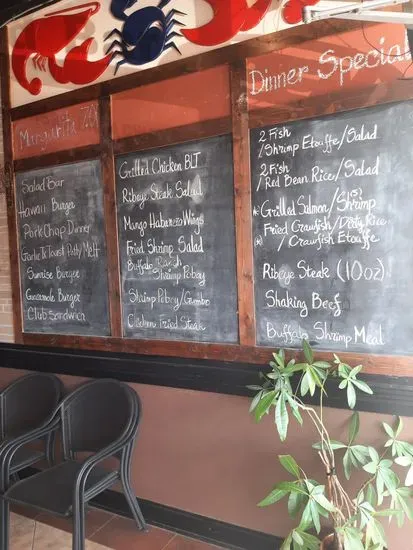 Margarita
Salad Bar
Hawaii Burger
Pork Chop Dinner
Garlic Toast Patty Melt
Sunrise Burger
Guacamole Burger
Club Sandwich
Grilled Chicken BLT
Ribeye Steak Salad
Mango Habanero Wings
Fried Shrimp Salad
Buffalo Ranch
Shrimp Poboy
Shrimp Poboy/Gumbo
Chicken Fried Steak
Dinner Special
2 Fish
/Shrimp Etouffe/Salad
2 Fish
/Red Bean Rice/Salad
*Grilled Salmon/Shrimp (5)
Fried Crawfish/Dirty Rice
(*) /Crawfish Etouffe
Ribeye Steak (10oz)
Shaking Beef
Buffalo Shrimp Meal